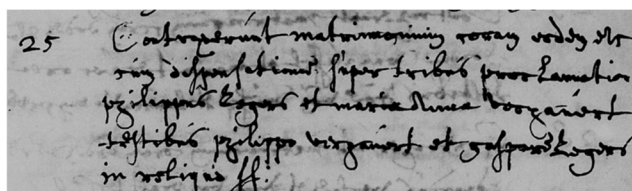 25 Contraxerunt matrimonium coram eisdem etc
cum dispensatione super tribus proclamatio
philippus Legers et maria Anna verhauert
testibus philippo verhauert et gaspare Legers
in reliquo ff.